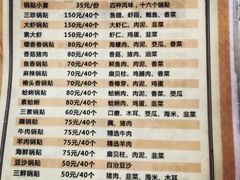 锅贴小宴 35元/份 四种风味，十六个锅贴
三珍锅贴 150元/40个 鱼翅、虾段、鲍鱼、香菜
大虾锅贴 150元/40个 虾仁、肉泥、韭菜
素大虾 150元/40个 虾仁、鸡蛋、韭菜
香锅贴 80元/40个 海螺肉、肉泥、香菜、茭瓜
鱼香锅贴 80元/40个 鱼肉、肉泥、韭菜
鸡脯锅贴 80元/40个 鸡脯肉、香菜
麻香锅贴 80元/40个 麻贝柱、肉泥、韭菜
锅贴 80元/40个 猪肉、肉泥、香菜
蛤蜊锅贴 60元/40个 蛤蜊肉、肉泥、香菜、茭瓜
素蛤蜊 60元/40个 蛤蜊肉、鸡蛋、韭菜
三素锅贴 60元/40个 口磨、木耳、茭瓜、海米、韭菜
藕锅贴 75元/40个 藕、猪肉
牛肉锅贴 75元/40个 精选牛肉
羊肉锅贴 75元/40个 精选羊肉
海鲜锅贴 75元/40个 磨贝柱、香菜、韭菜
豆沙锅贴 50元/40个 自治豆沙
三鲜锅贴 50元/40个 肉、韭菜、海米、木耳